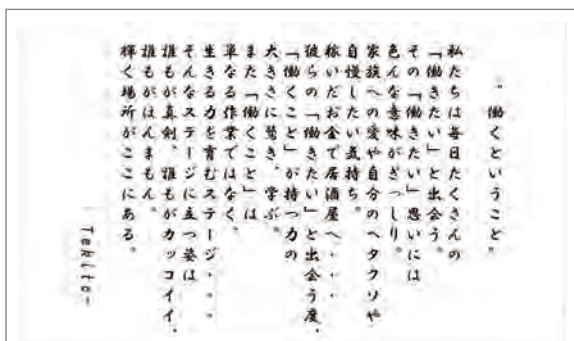 “働くということ。
私たちは毎日たくさんの
「働きたい」と出会う。
その「働きたい」思いには
色んな意味がぎっしり。
家族への愛や自分のヘタクソや
自慢したい気持ち。
稼いだお金で居酒屋へ・・・
彼らの「働きたい」と出会う度、
「働くこと」が持つ力の
大きさに驚き、学ぶ。
また「働くこと」は
単なる作業ではなく。
生きる力を育むステージ・・・
そんなステージに立つ姿は
誰もが真剣、誰もがカッコイイ、
誰もがほんまもん。
輝く場所がここにある。
Tekito-